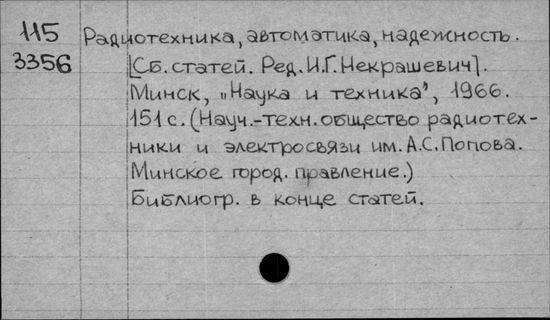 115 Радиотехника, автоматика, надежность.
3356 [Сб. статей. Ред. И.Г. Некрашевич].
Минск, „Наука и техника", 1966.
151 с. (Науч.-техн. общество радиотех-
ники и электросвязи им. А.С. Попова.
Минское город. правление.)
Библиогр. в конце статей.